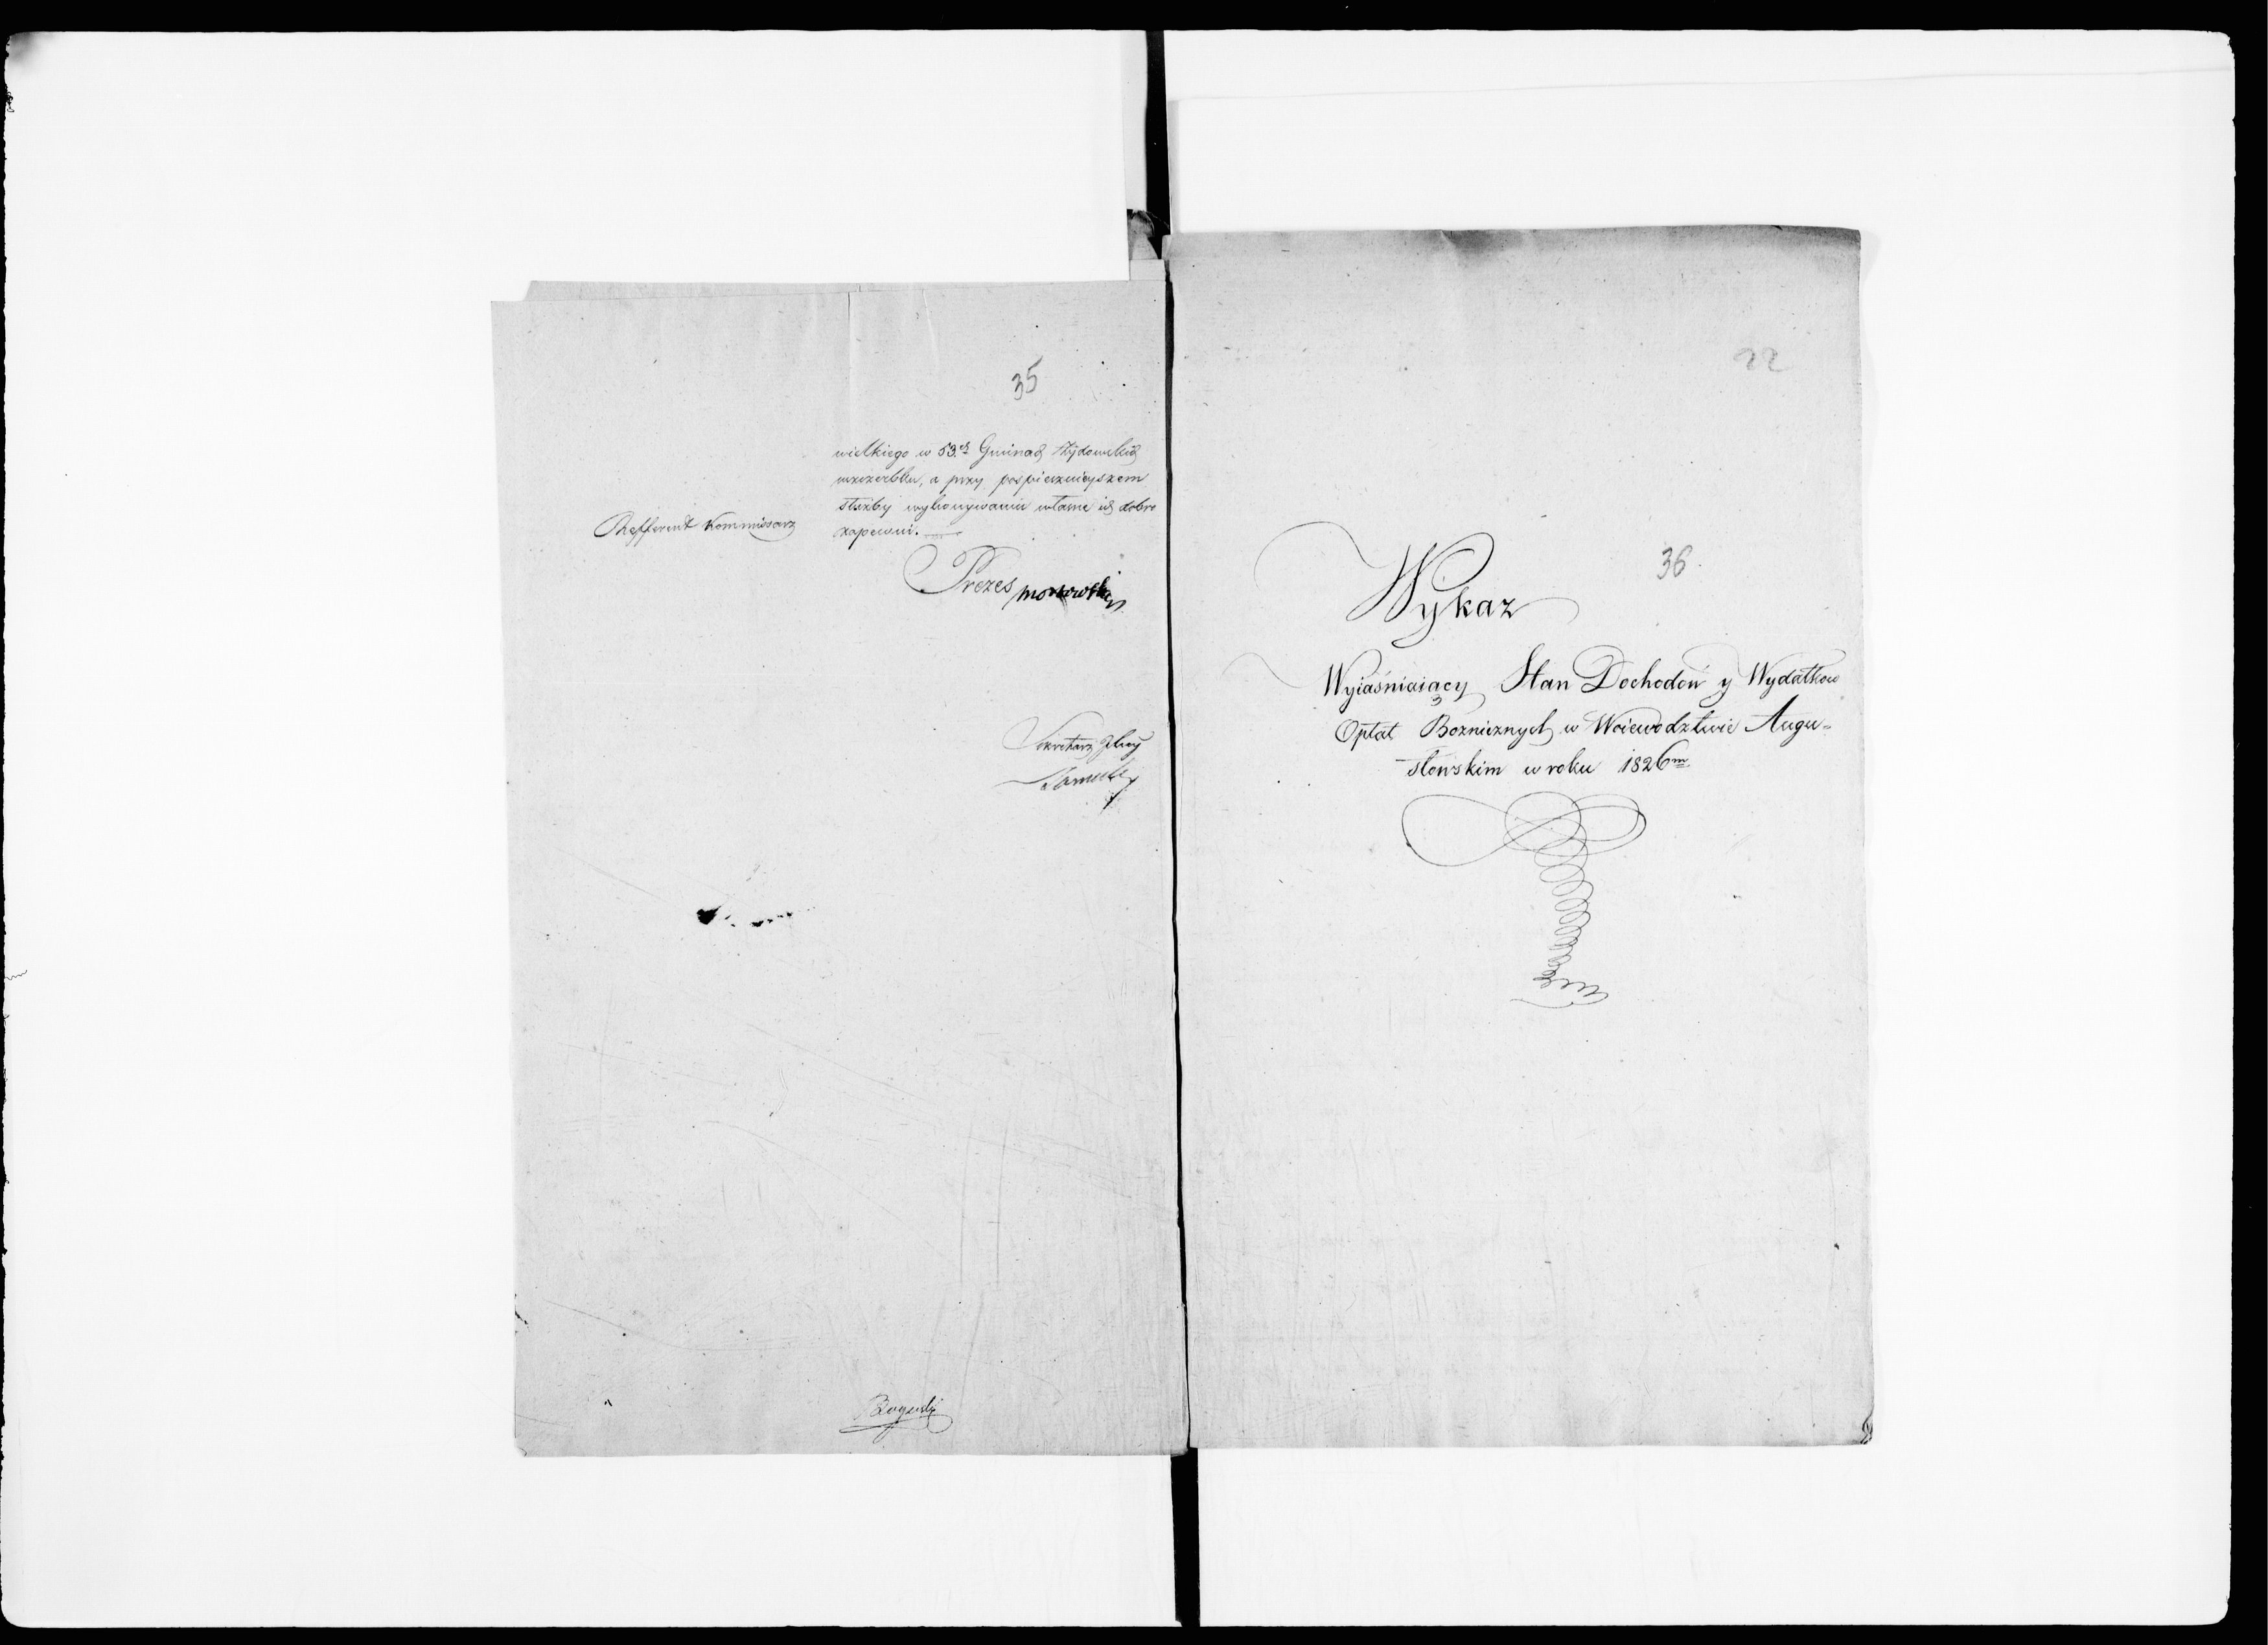 35
wielkiego w 53.ch Gminach Żydowskich
uszczerbku, a przy pospiesznieyszem
służby wykonywaniu własne ich dobro
zapewni.
Refferent Kommissarz
Prezes
Sekretarz Jlny
22
36
Wykaz
Wyiaśniaiący Stan Dochodów y Wydatkow
Opłat Boznicznych w Woiewodztwie Augu-
stowskim w roku 1826m